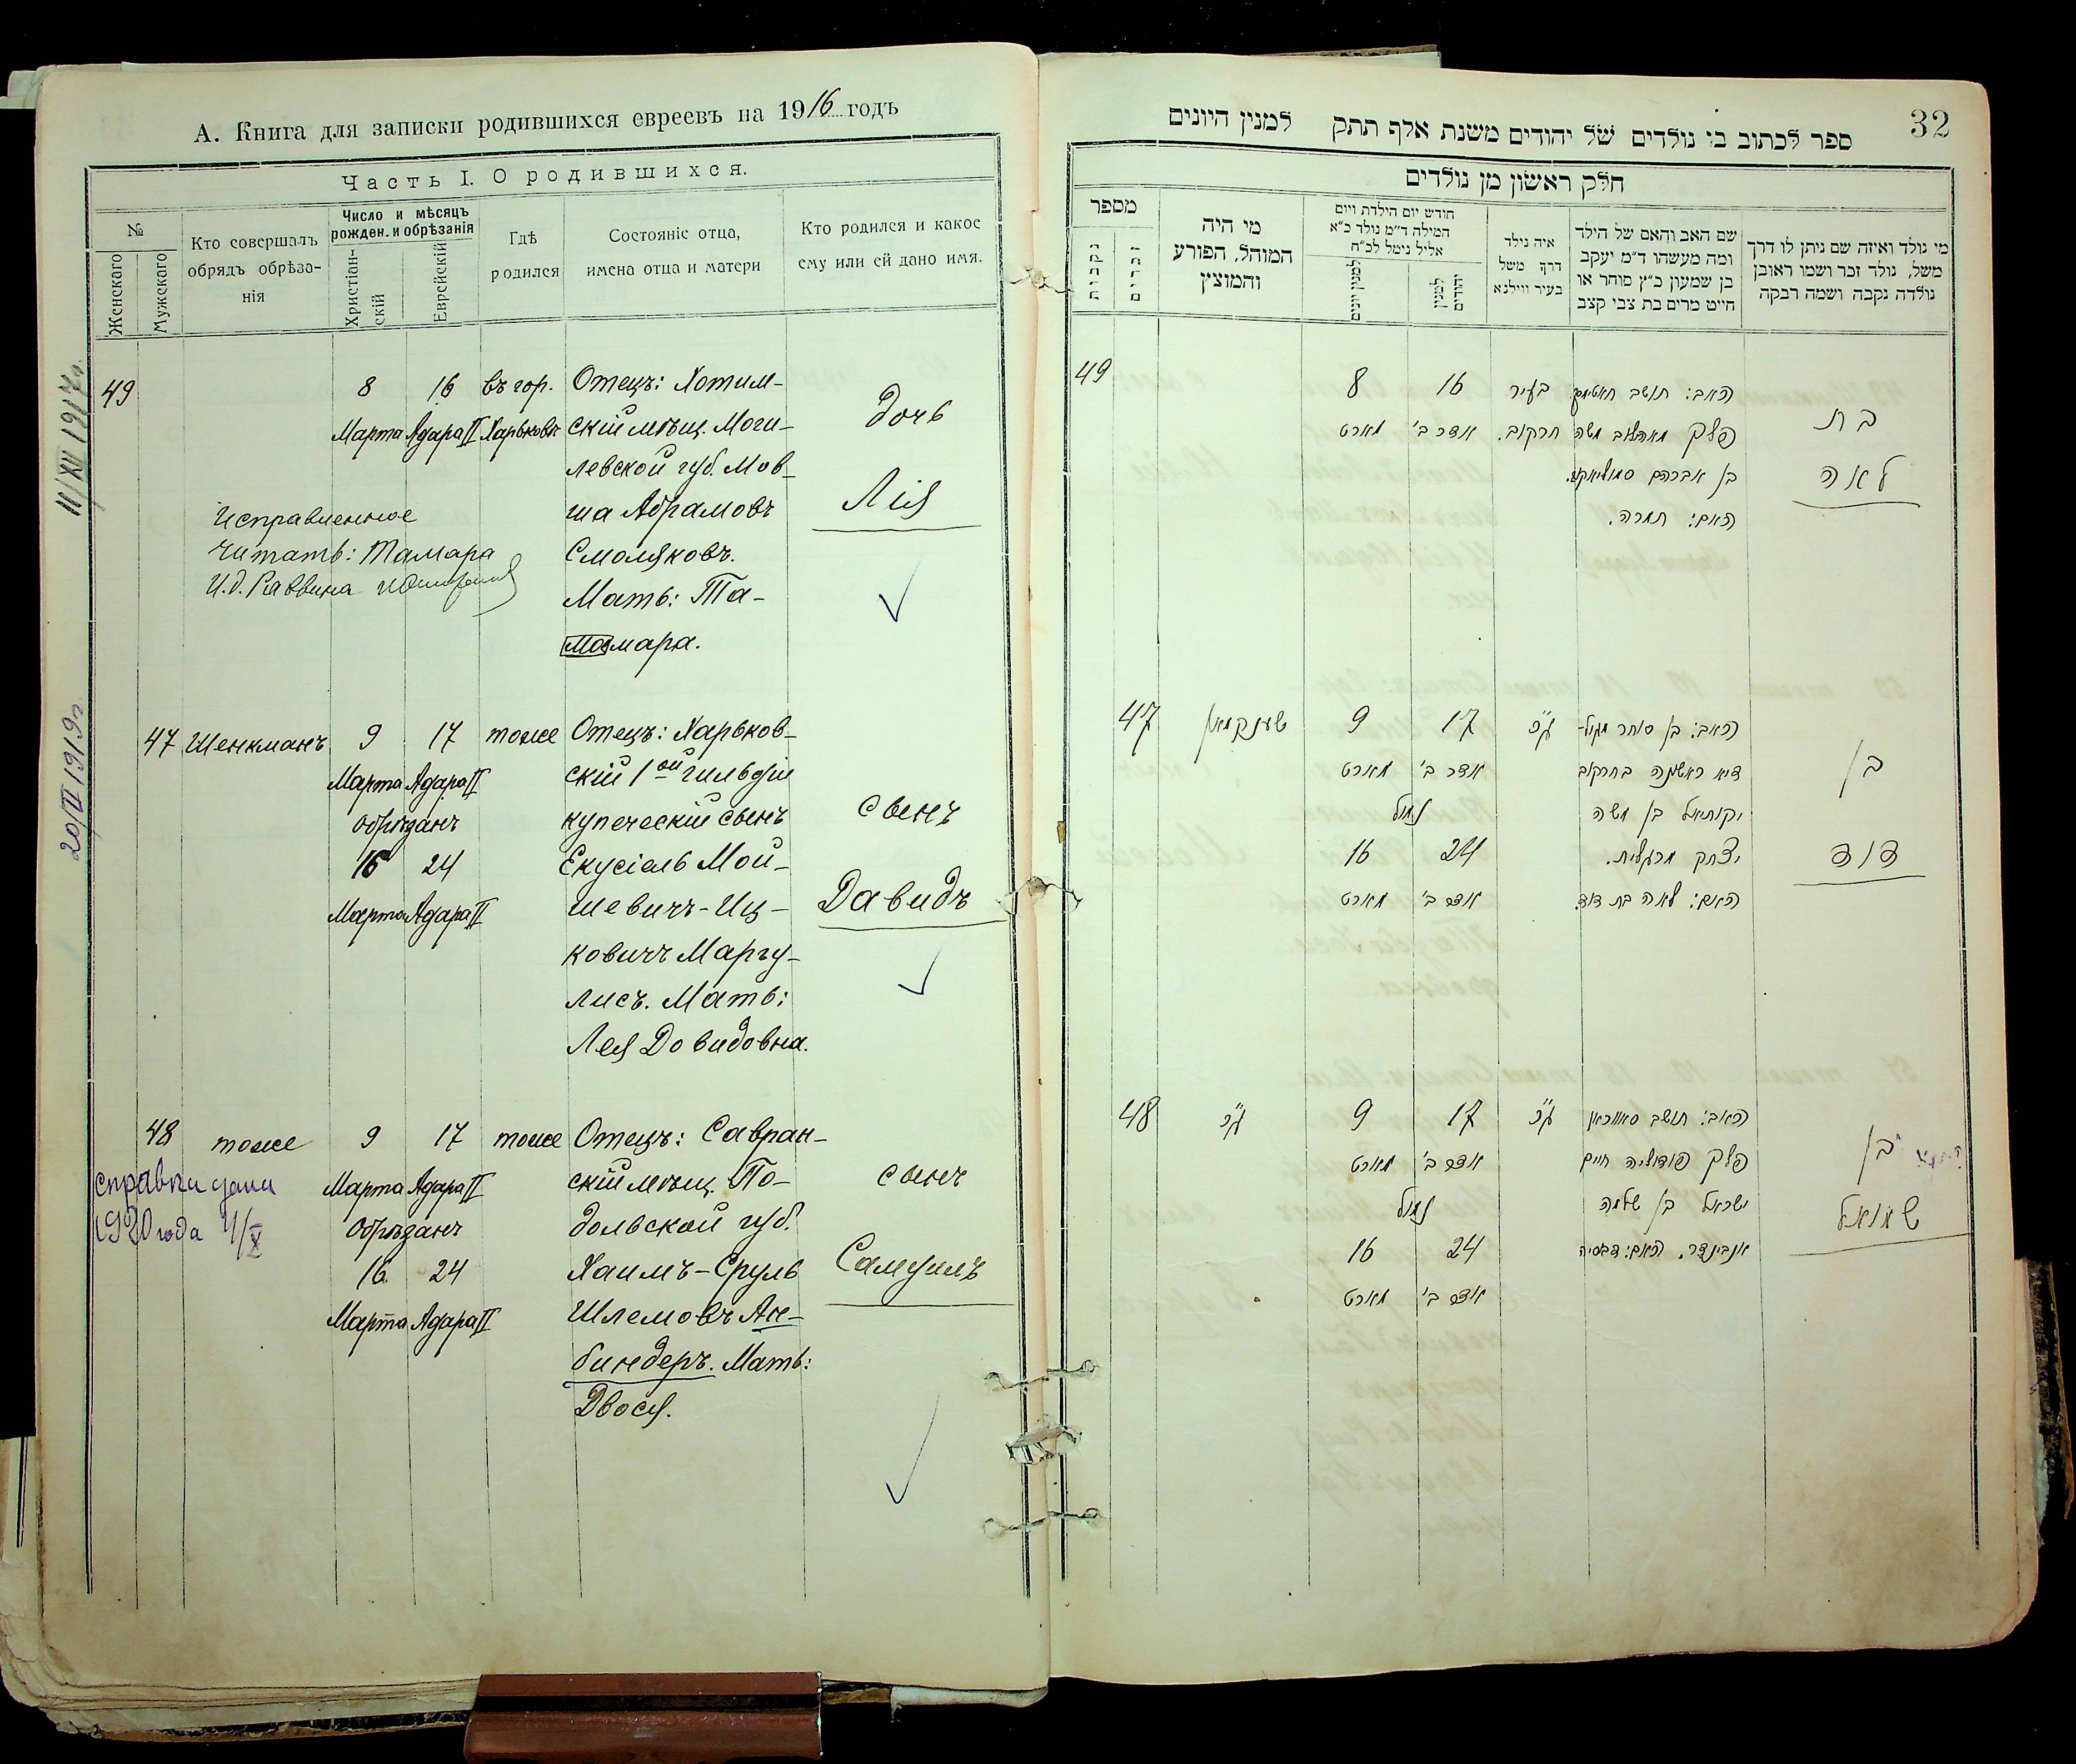 А. Книга для записки родившихся евреевъ на 1916 годъ
Часть I. О родившихся.
№
Женскаго
Мужскаго
Кто совершалъ
обрядъ обрѣза-
нія
Число и мѣсяцъ
рожден. и обрѣзанія
Христіан-
скій
Еврейскій
Гдѣ
родился
Состояніе отца,
имена отца и матери
Кто родился и какое
ему или ей дано имя.
11/XII 1917 г.
49
8 16 въ гор.
Марта Адара II Харьковѣ
Отецъ: Хотим-
скій мѣщ. Моги-
левской губ. Мов-
ша Абрамовъ
Смоляковъ.
Мать: Та-
мамара.
дочь
Лія
Исправленное
читать: Тамара
И.д. Раввина
20/II 1919 г.
47 Шенкманъ 9 17 тоже
Марта Адара II
обрѣзанъ
16 24
Марта Адара II
Отецъ: Харьков-
скій 1ой гильдіи
купеческій сынъ
Екусіель Мов-
шевичъ-Иц-
ковичъ Маргу-
лисъ. Мать:
Лея Довидовна.
сынъ
Давидъ
48 тоже 9 17 тоже
справки даны
1920 года
Марта Адара II
обрѣзанъ
16 24
Марта Адара II
Отецъ: Савран-
скій мѣщ. По-
дольской губ.
Хаимъ-Сруль
Шлемовъ Ан-
биндеръ. Мать:
Двося.
сынъ
Самуилъ
32
ספר לכתוב בו נולדים של יהודים משנת אלף תתק למנין היונים
חלק ראשון מן נולדים
מספר
נקבות
זכרים
מי היה
המוהל, הפורע
והמוצץ
חודש יום הילדת ויום
המילה ד״מ נולד כ״א
אליל נימל לכ״ח
למנין יונים
למנין
יהודים
איה נולד
דרך משל
בעיר ווילנא
שם האב והאם של הילד
ומה מעשהו ד״מ יעקב
בן שמעון כ״ץ סוחר או
חייט מרים בת צבי קצב
מי נולד ואיזה שם ניתן לו דרך
משל, נולד זכר ושמו ראובן
נולדה נקבה ושמה רבקה
49
8 16
אדר ב׳ מארט
בעיר
חרקוב.
האב: תושב חאטימסק
פלך מאהלוב משה
בן אברהם סמוליאקוב.
האם: תמרה.
בת
לאה
47 שענקמאן
9 17
אדר ב׳ מארט
נמול
16 24
אדר ב׳ מארט
האב: בן סוחר מגיל-
דיא ראשונה בחרקוב
יקותיאל בן משה
יצחק מרגלית.
האם: לאה בת דוד
בן
דוד
48
9 17
אדר ב׳ מארט
נמול
16 24
אדר ב׳ מארט
האב: תושב סאווראן
פלך פודוליה חיים
ישראל בן שלמה
אנבינדר. האם: דבוסיה
בן
שמואל